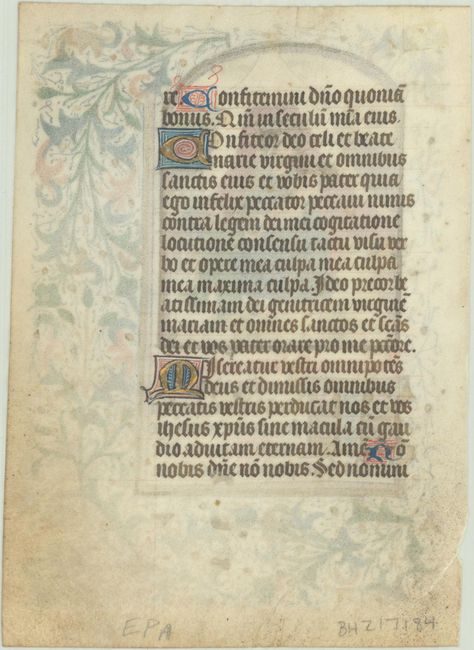 re Confitemini dn̄o quoniā
bonus. Q̄m in seculū mīa eius.
Confiteor deo celi et beate
marie virgini et omnibus
sanctis eius et vobis pater quia
ego infelix peccator peccaui nimis
contra legem dei mei cogitatione
locutione consensu tactu visu ver
bo et opere mea culpa mea culpa
mea maxima culpa. Ideo precor be
atissimam dei genitricem virginē
mariam et omnes sanctos et scās
dei et vos pater orare pro me pctōre.
Misereatur vestri omnipotēs
deus et dimissis omnibus
peccatis vestris perducat nos et vos
ihesus xpūs sine macula cū gau
dio ad vitam eternam. Amē Nō
nobis dn̄e nō nobis. Sed nomini
EPA BHZ17184